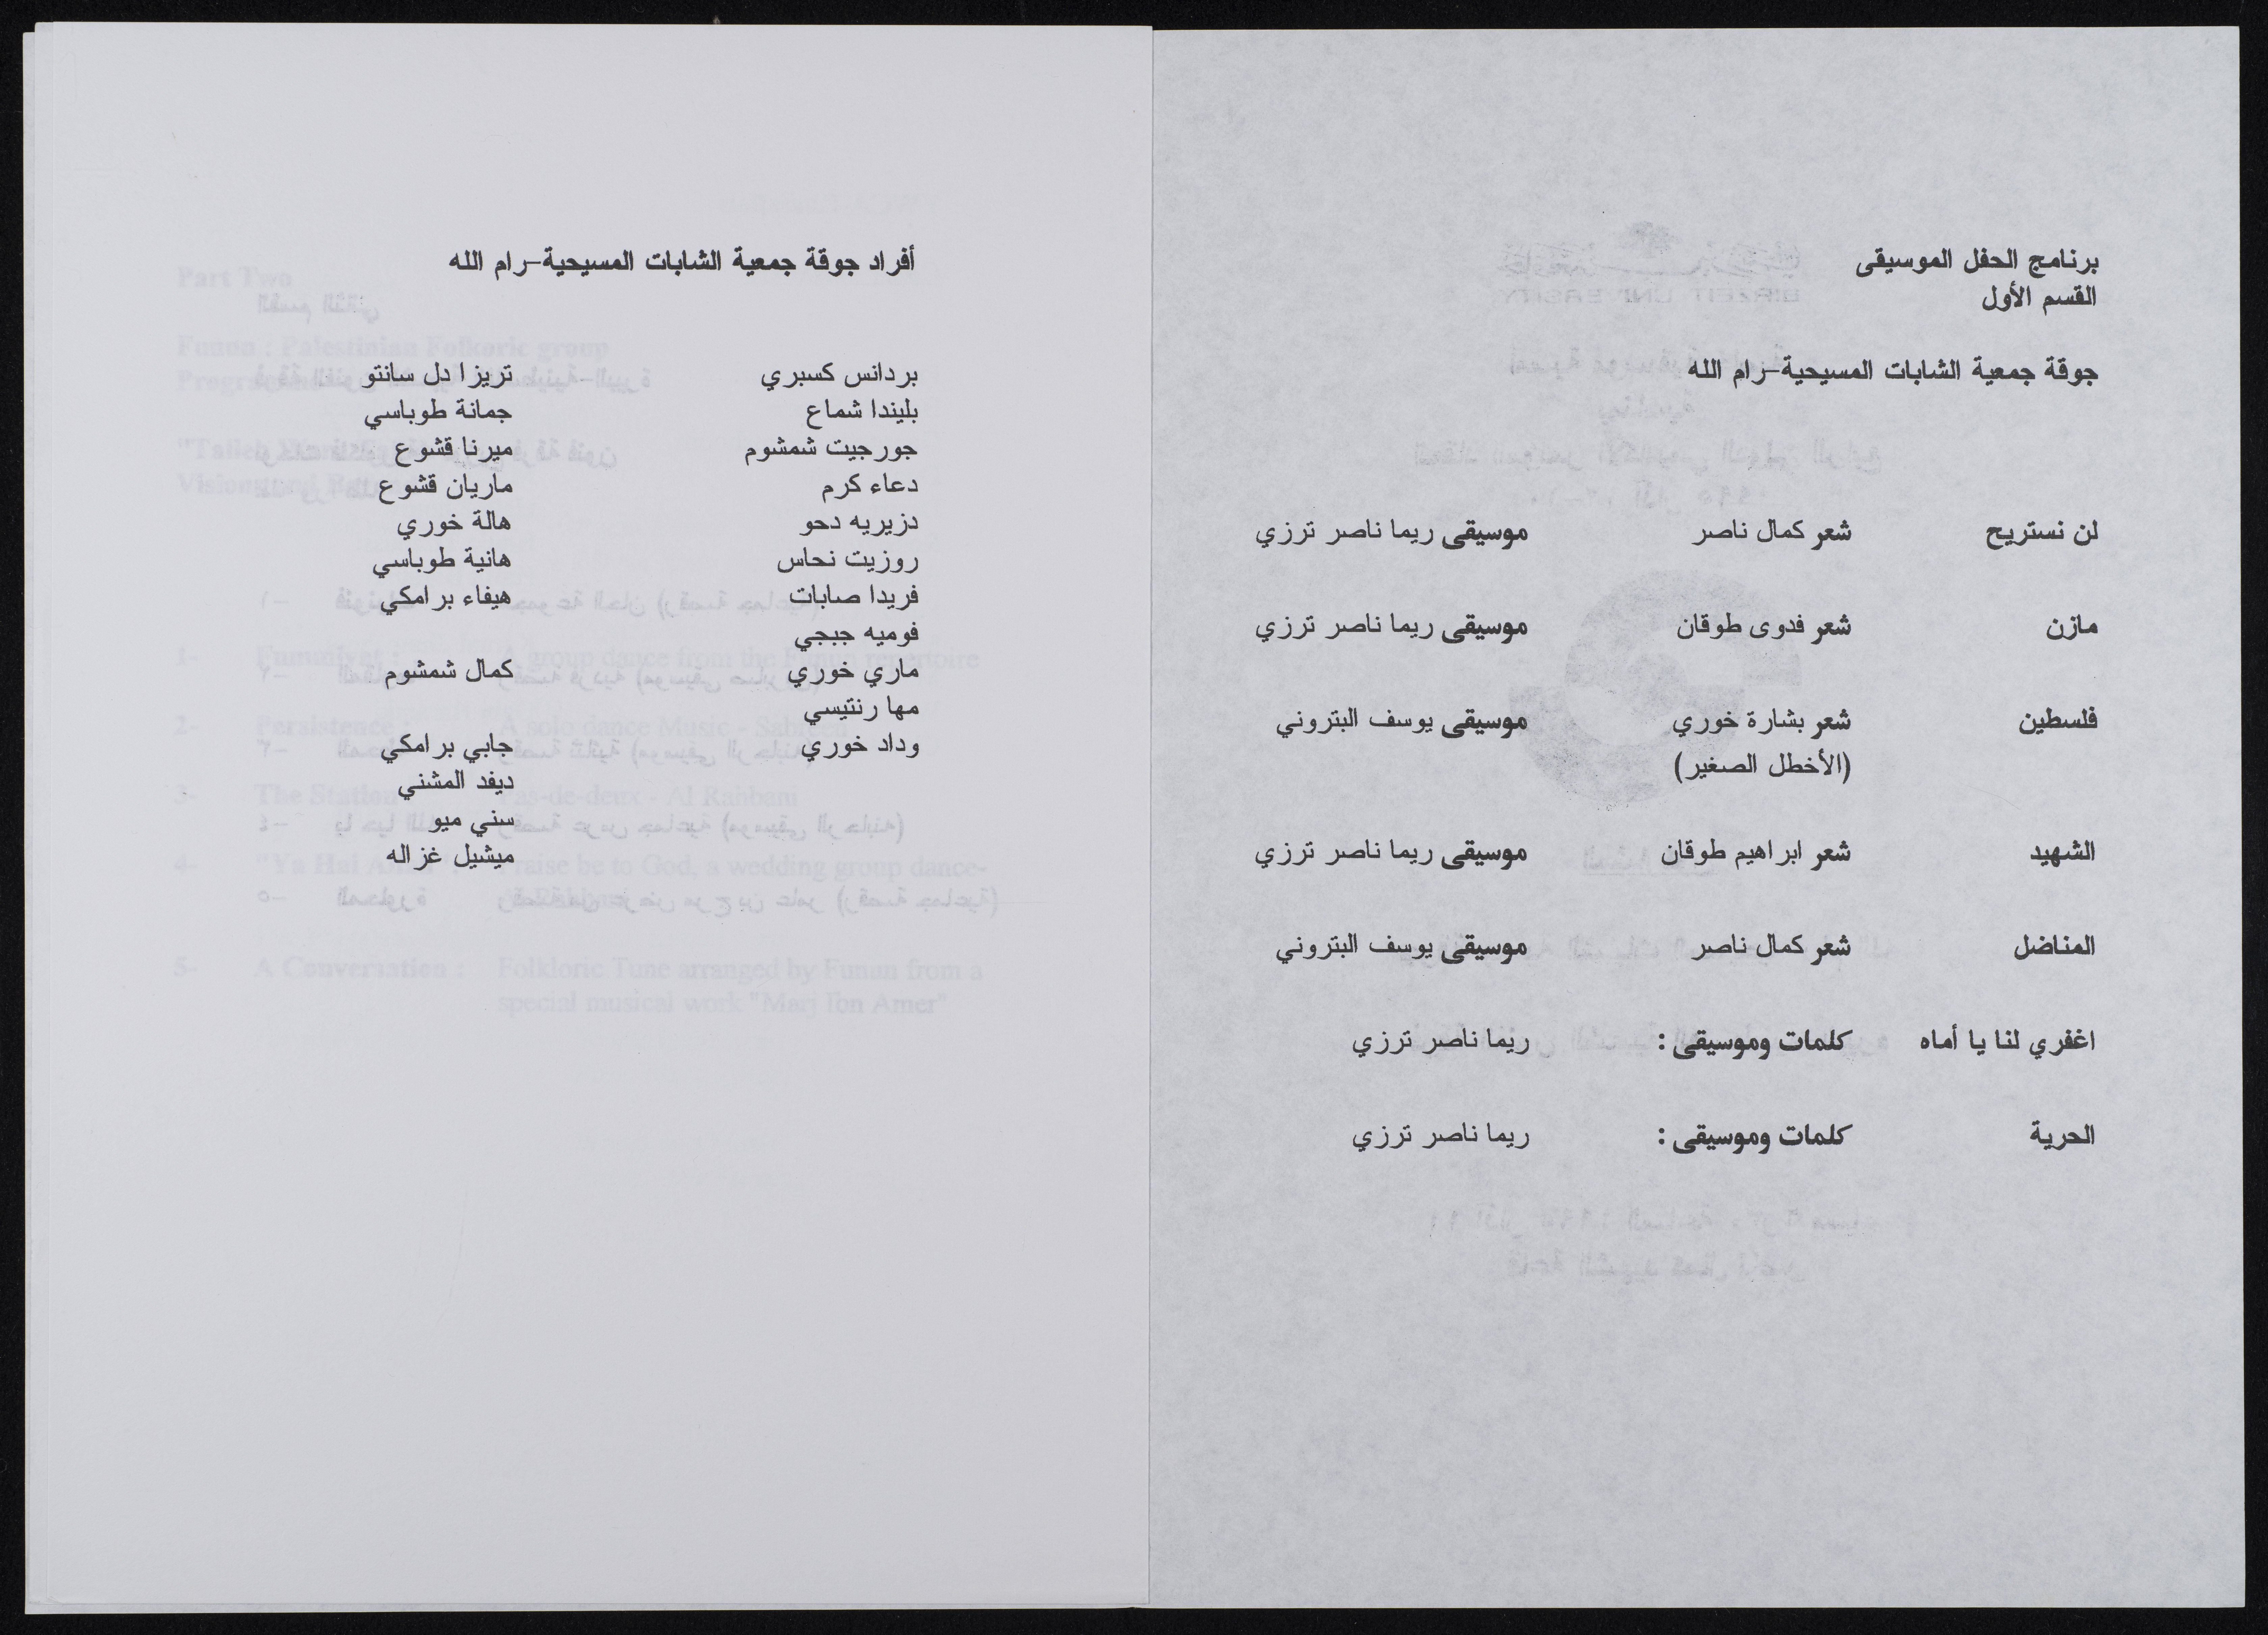 برنامج الحفل الموسيقى
القسم الأول
جوقة جمعية الشابات المسيحية-رام الله
لن نستريح شعر كمال ناصر موسيقى ريما ناصر ترزي
مازن شعر فدوى طوقان موسيقى ريما ناصر ترزي
فلسطين شعر بشارة خوري موسيقى يوسف البتروني
(الأخطل الصغير)
الشهيد شعر ابراهيم طوقان موسيقى ريما ناصر ترزي
المناضل شعر كمال ناصر موسيقى يوسف البتروني
اغفري لنا يا أماه كلمات وموسيقى : ريما ناصر ترزي
الحرية كلمات وموسيقى : ريما ناصر ترزي
أفراد جوقة جمعية الشابات المسيحية-رام الله
بردانس كسبري تريزا دل سانتو
بليندا شماع جمانة طوباسي
جورجيت شمشوم ميرنا قشوع
دعاء كرم ماريان قشوع
دزيريه دحو هالة خوري
روزيت نحاس هانية طوباسي
فريدا صابات هيفاء برامكي
فوميه جبجي
ماري خوري كمال شمشوم
مها رنتيسي
وداد خوري جابي برامكي
ديفد المشني
سني ميو
ميشيل غزاله